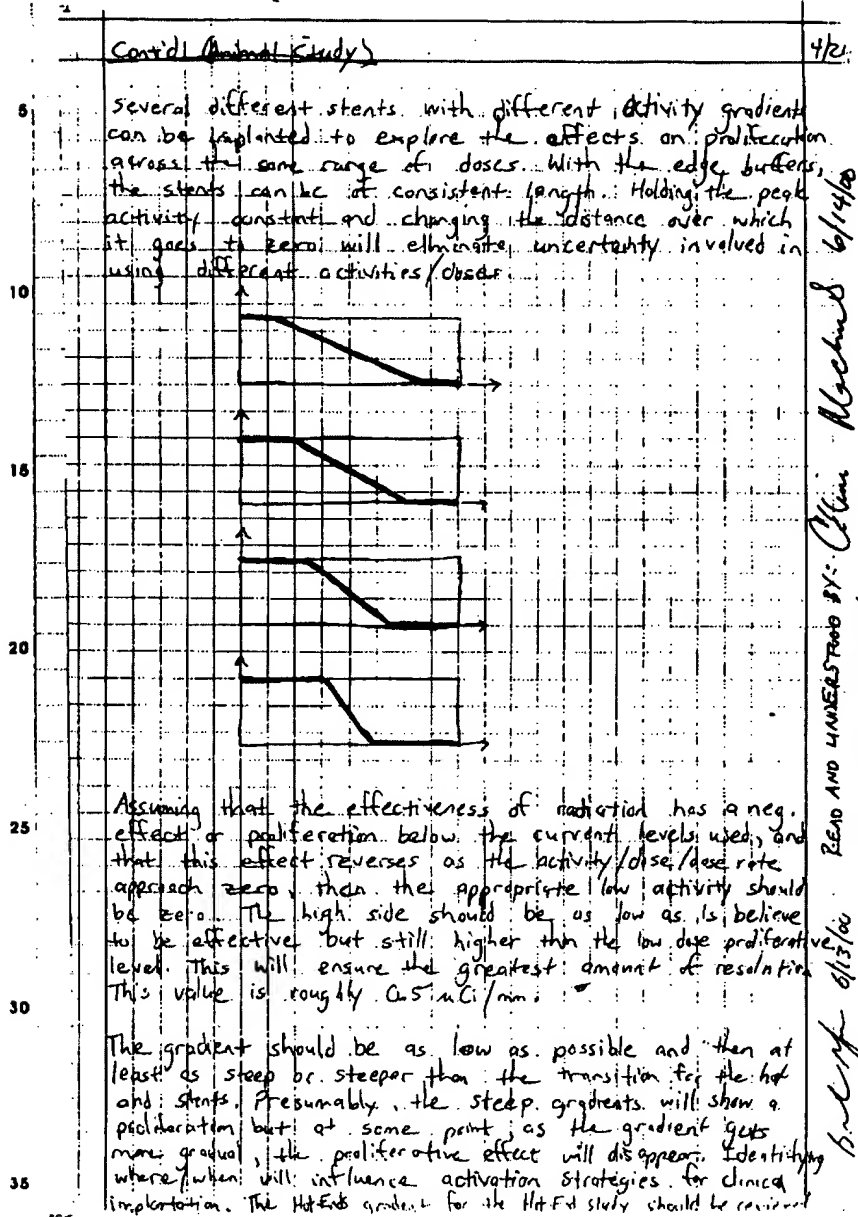 Cont'd (Animal Study)
4/21
5
Several different stents with different activity gradients
can be implanted to explore the effects on proliferation
across the same range of doses. With the edge buffers,
the stents can be of consistent length. Holding the peak
activity constant and changing the distance over which
it goes to zero will eliminate uncertainty involved in
using different activities/doses
10
15
20
Assuming that the effectiveness of radiation has a neg.
25
effect or proliferation below the current levels used, and
that this effect reverses as the activity/dose/dose rate
approach zero, then the appropriate low activity should
be zero. The high side should be as low as is believe
to be effective but still higher than the low dose proliferative
level. This will ensure the greatest amount of resolution
This value is roughly 0.5 uCi/mm.
30
The gradient should be as low as possible and then at
least as steep or steeper than the transition for the hot
end stents. Presumably, the steep gradients will show a
proliferation but at some point, as the gradient gets
more gradual, the proliferative effect will disappear. Identifying
35
where/when will influence activation strategies for clinical
implantation. The Hot Ends gradient for the Hot End study should be reviewed
6/13/00 READ AND UNDERSTOOD BY: 6/14/00